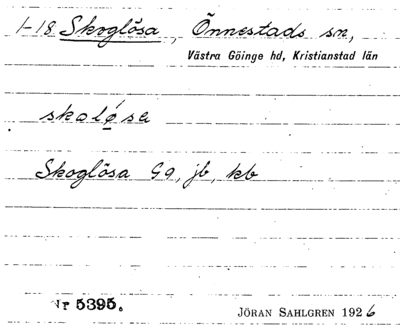 1-18 Skoglösa, Önnestads sn,
Västra Göinge hd, Kristianstad län
skaløsa
Skoglösa Ga, jb, kb
Nr 5395.
JÖRAN SAHLGREN 1926